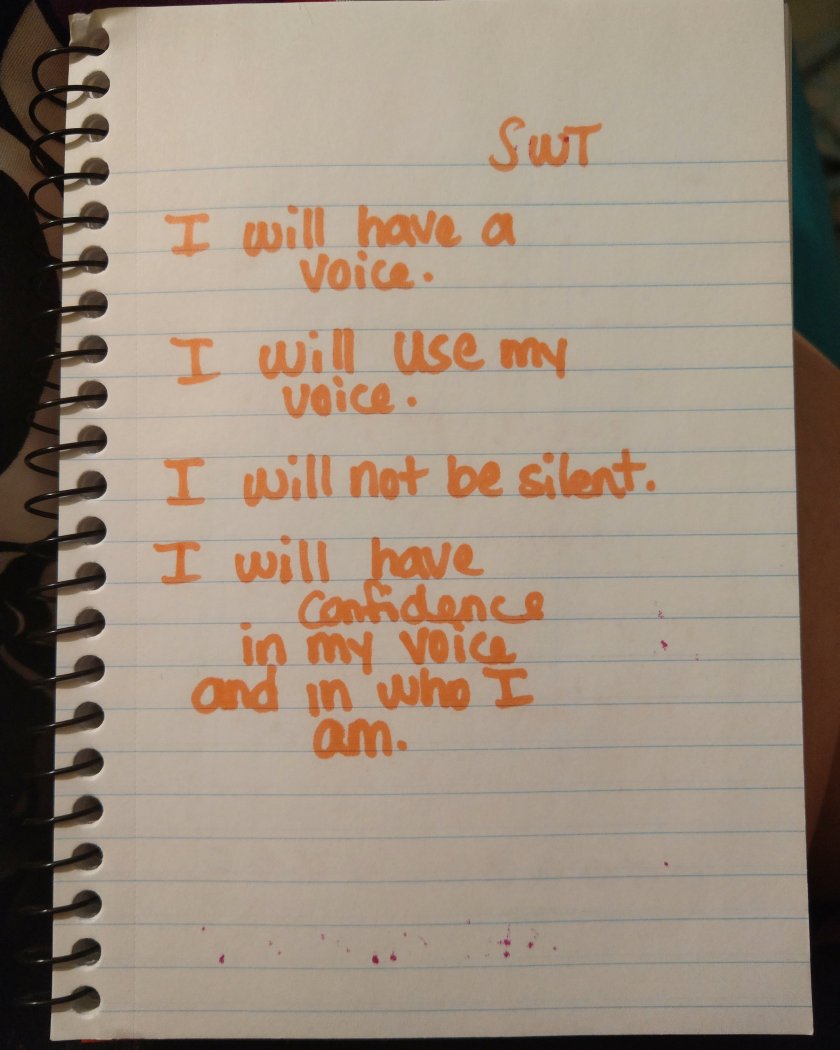 SWT
I will have a
voice.
I will use my
voice.
I will not be silent.
I will have
confidence
in my voice
and in who I
am.